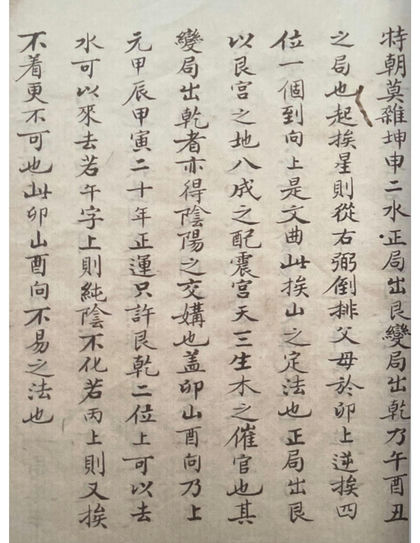 特朝莫雜坤申二水正局出艮變局出乾乃午酉丑
之局也起挨星則從右弼倒排父母於卯上逆挨四
位一個到向上是文曲此挨山之定法也正局出艮
以艮宮之地八成之配震宮天三生木之催官也其
變局出乾者亦得陰陽之交媾也蓋卯山酉向乃上
元甲辰甲寅二十年正運只許艮乾二位上可以去
水可以來去若午字上則純陰不化若丙上則又挨
不着更不可也此卯山酉向不易之法也